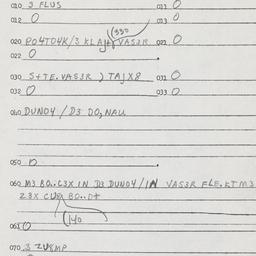 010 3 FLUS 011 0
012 0 013 0
(330
020 PO4TO4K/3 KLAJ VAS3R 021 0
022 0
030 S+TE.VAS3R ) TAJX8 031 0
032 0 033 0
040 DUNO4 / D3 DO,NAU
050 0
060 M3 BO..C3X IN D3 DUNO4/IN VAS3R FLE.KTM3
Z3X BO..D+
(140
061 0
070 3 ZUKMP